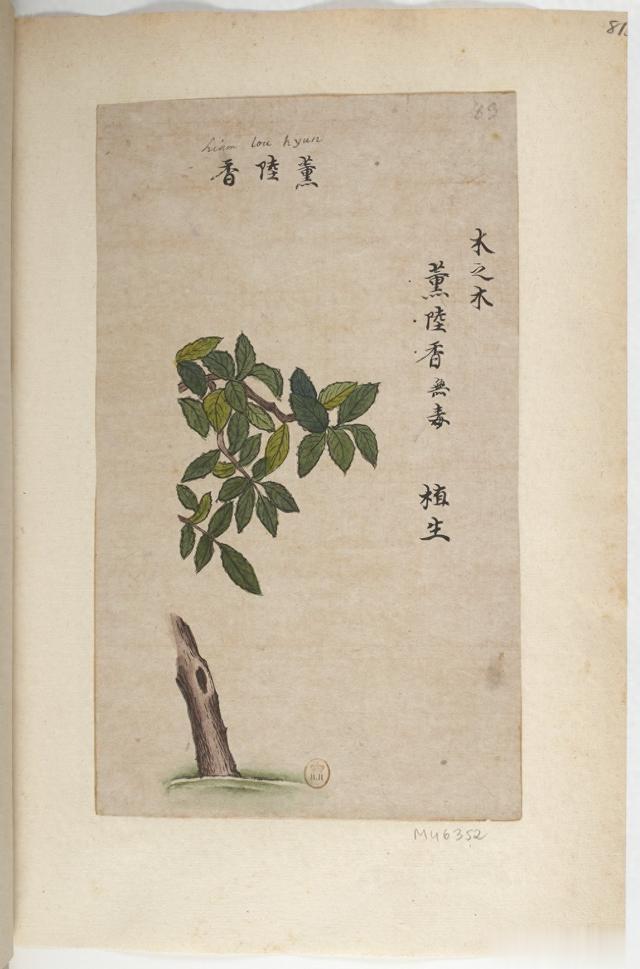 81
69
hiam lou hyun
香陸薰
木之木
薰陸香無毒 植生
MU6352